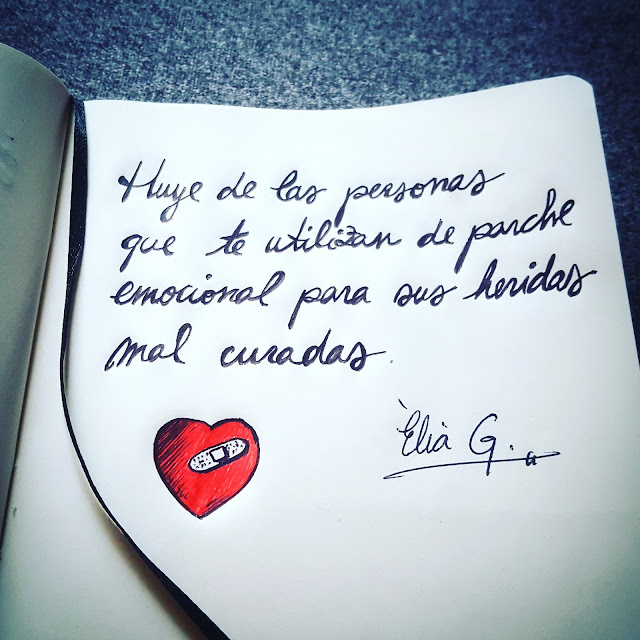 Huye de las personas
que te utilizan de parche
emocional para sus heridas
mal curadas.
Èlia G.